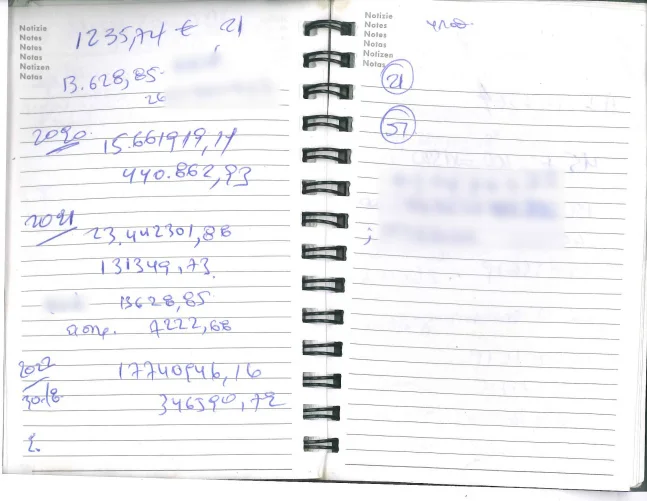 Notizie
Notes
Notas
Notes
Notizen
Notas
1235,74 € 21
13.628,85
26
2020 15.661919,14
440.862,93
2021
23.442301,86
131349,73
13628,85
4222,68
2022 17740946,16
30/8 346590,72
Notizie
Notes
Notas
Notes
Notizen
Notas
21
57